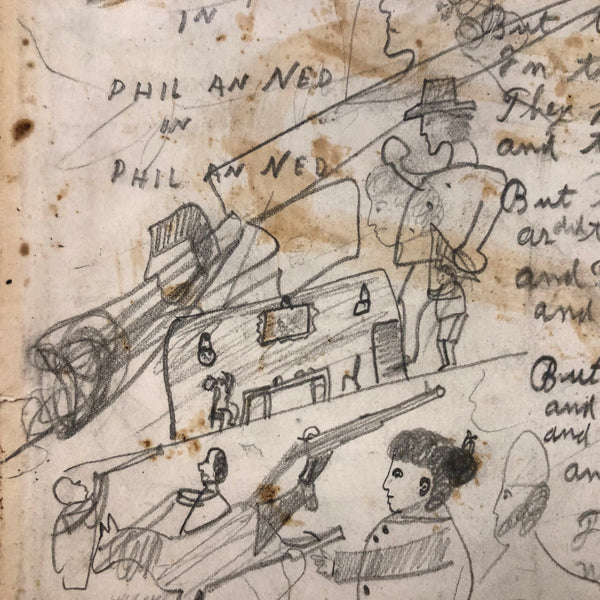 IN
PHIL AN NED
IN
PHIL AN NED
But
In
They
and
But
and
and
But
and
and
an